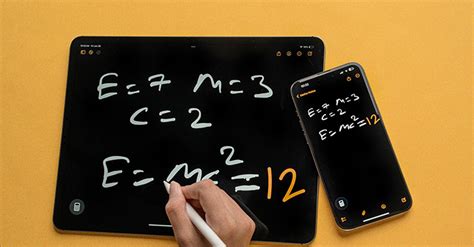 E=7 M=3
C=2
E=mc²=12
E=7 M=3
C=2
E=mc²=12